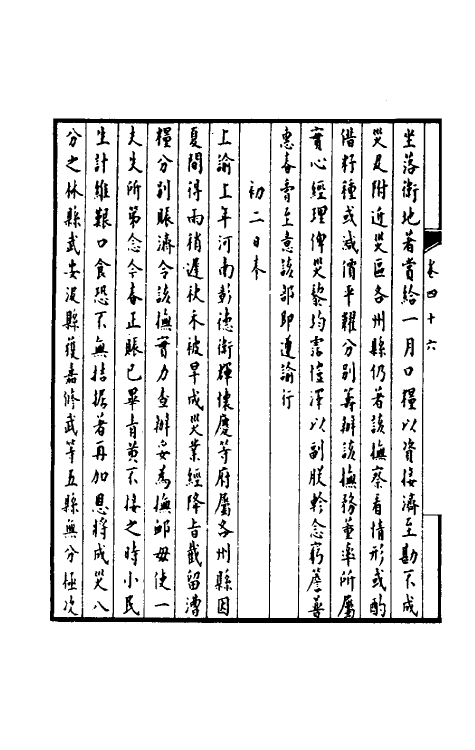 卷四十六
坐落衛地著賞給一月口糧以資接濟至勘不成
災及附近災區各州縣仍著該撫察看情形或酌
借籽種或減價平糶分別籌辦該撫務董率所屬
實心經理俾災黎均霑愷澤以副朕軫念窮簷善
惠春膏至意該部即遵諭行
初二日奉
上諭上年河南彰德衛輝懷慶等府屬各州縣因
夏間得雨稍遲秋禾被旱成災業經降旨截留漕
糧分別賑濟令該撫實力查辦妥為撫卹毋使一
夫失所第念今春正賑已畢青黃不接之時小民
生計維艱口食恐不無拮据著再加恩將成災八
分之林縣武安濬縣獲嘉修武等五縣無分極次